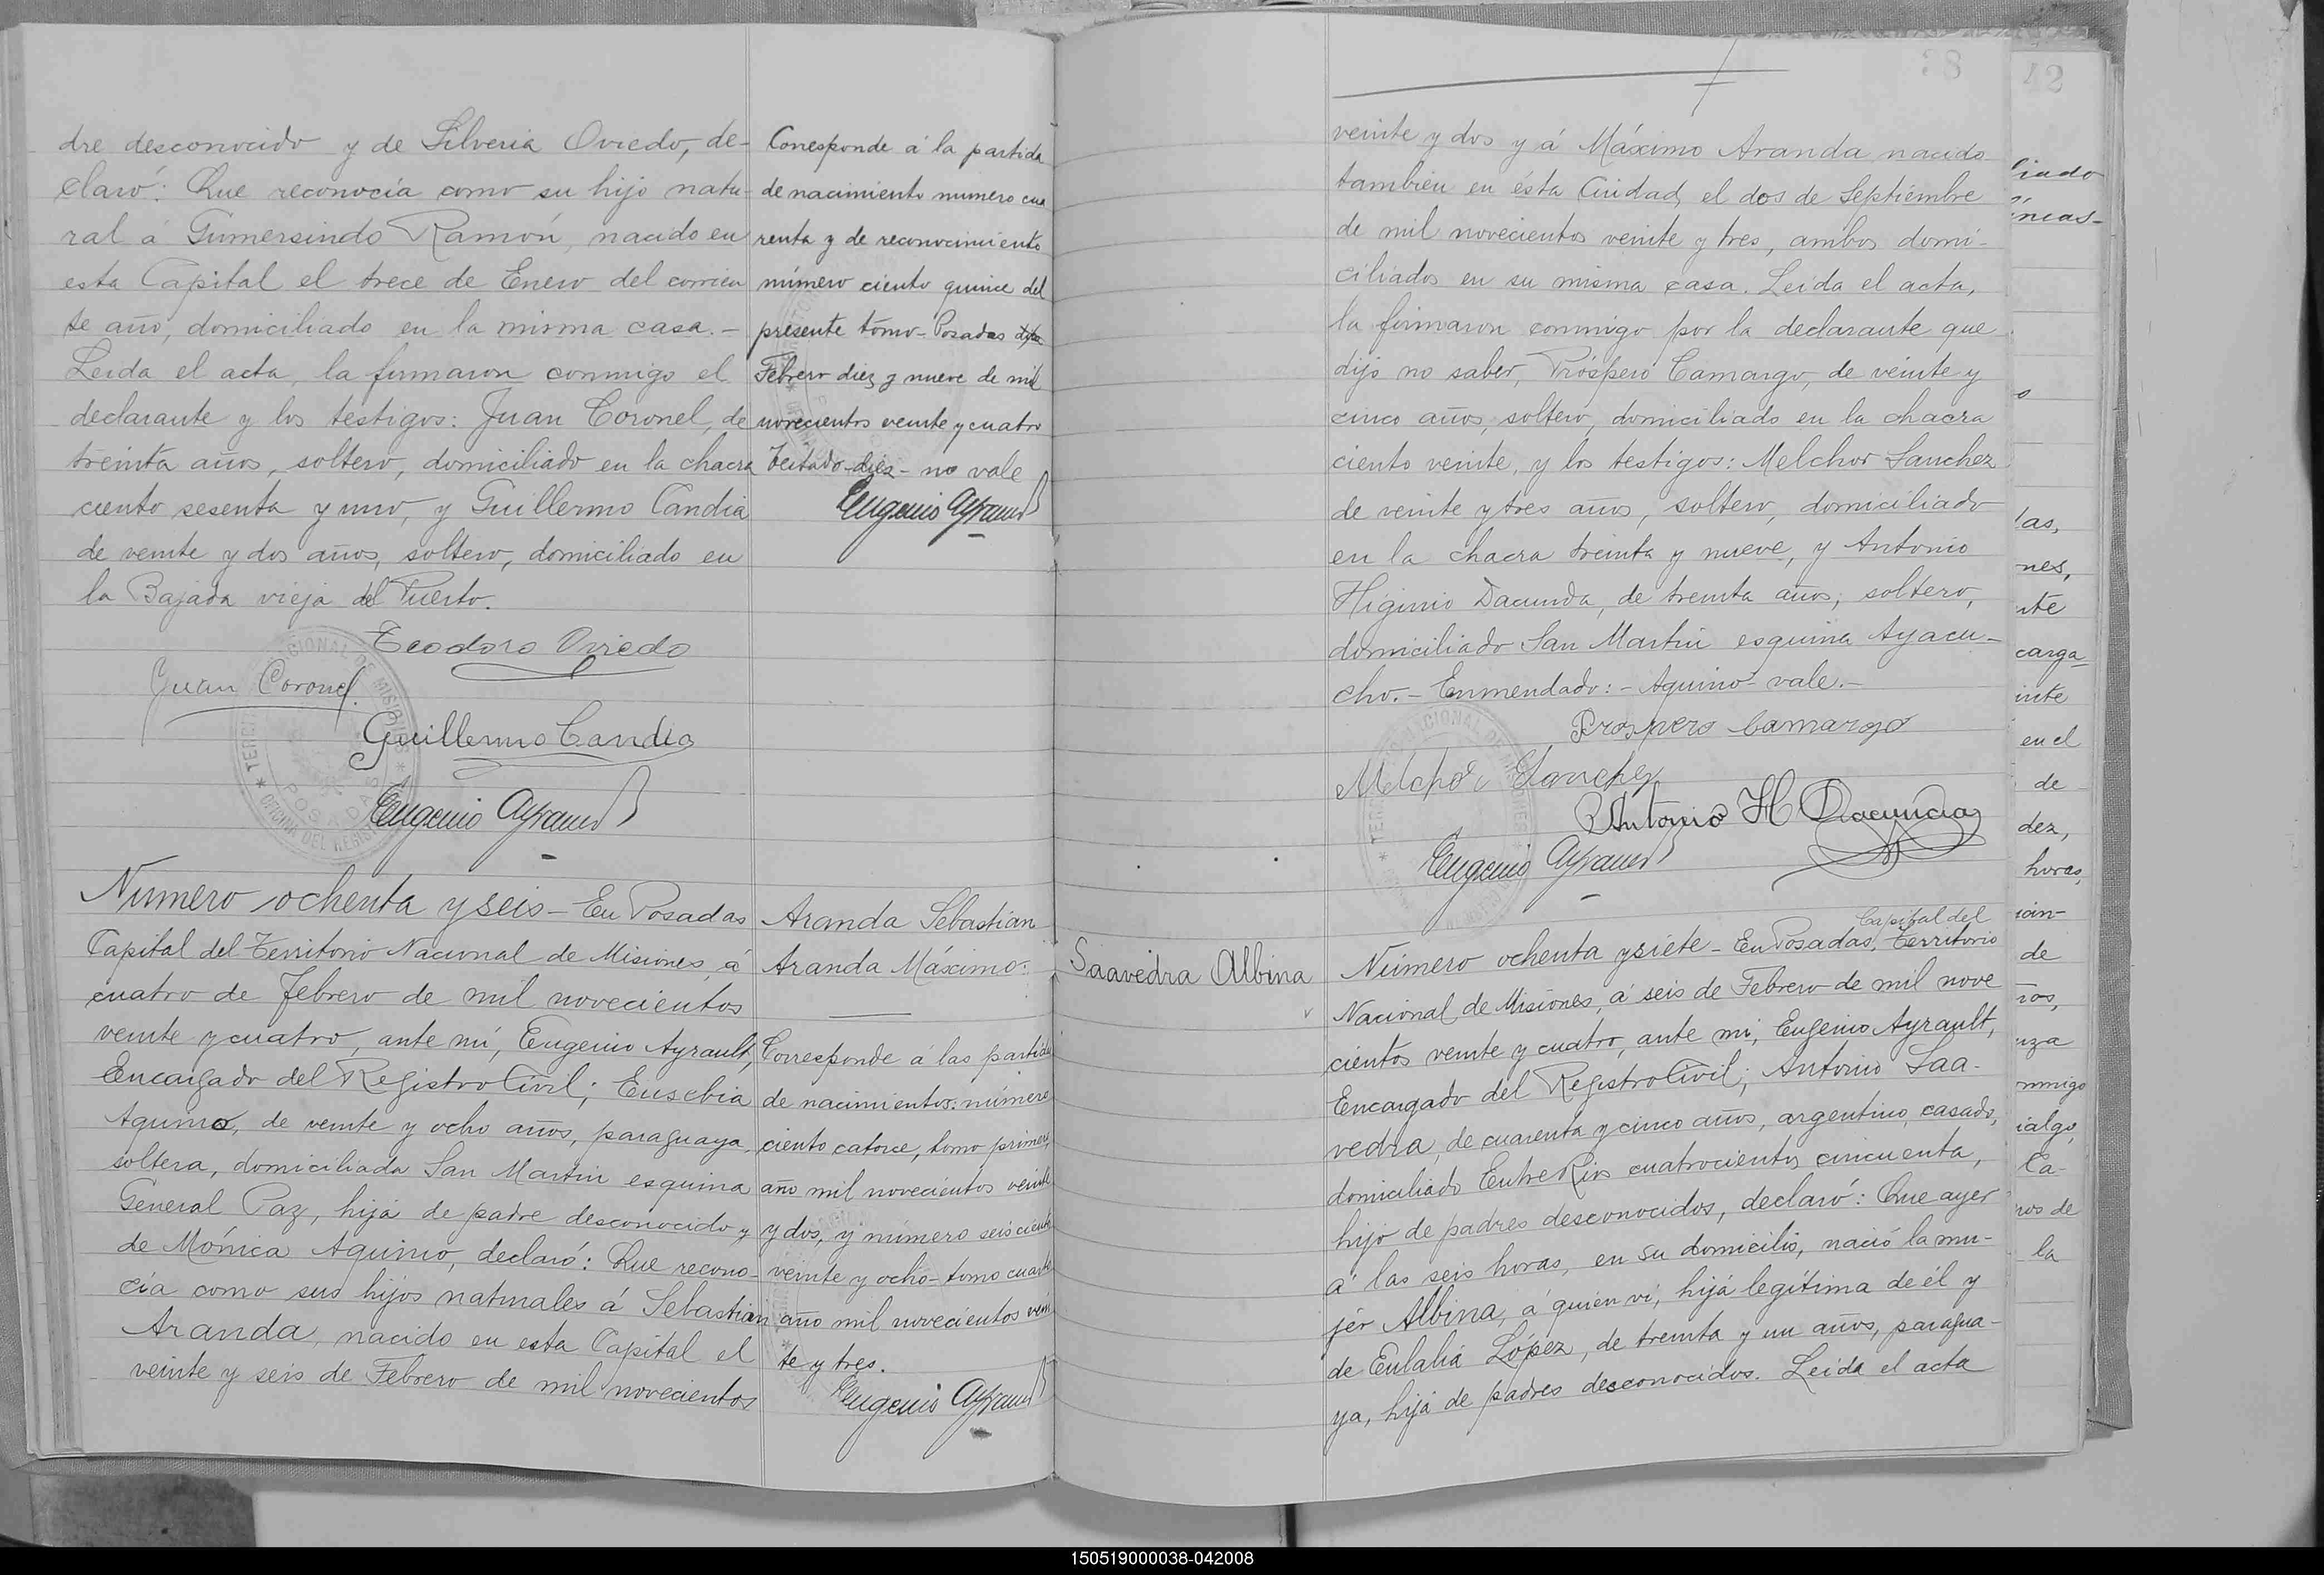 dre desconocido y de Silveria Oviedo, de-
claró: Que reconocía como su hijo natu-
ral á Gumersindo Ramón, nacido en
esta Capital el trece de Enero del corrien
te año, domiciliado en la misma casa.-
Leida el acta, la firmaron conmigo el
declarante y los testigos: Juan Coronel, de
treinta años, soltero, domiciliado en la chacra
ciento sesenta y uno, y Guillermo Candia
de veinte y dos años, soltero, domiciliado en
la Bajada vieja del Puerto.
Teodoro Oviedo
Juan Coronel
Guillermo Candia
Eugenio Ayrault
Corresponde á la partida
de nacimiento numero cua
renta y de reconocimiento
número ciento quince del
presente tomo- Posadas diez
Febrero diez y nueve de mil
novecientos veinte y cuatro
Testado-diez- no vale
Eugenio Ayrault
Número ochenta y seis- En Posadas
Capital del Territorio Nacional de Misiones, á
cuatro de Febrero de mil novecientos
veinte y cuatro, ante mí, Eugenio Ayrault,
Encargado del Registro Civil; Eusebia
Aquino, de veinte y ocho años, paraguaya,
soltera, domiciliada San Martin esquina
General Paz, hija de padre desconocido y
de Mónica Aquino, declaró: Que recono-
cía como sus hijos naturales á Sebastian
Aranda, nacido en esta Capital el
veinte y seis de Febrero de mil novecientos
Aranda Sebastian
Aranda Máximo.
Corresponde á las partidas
de nacimientos: número
ciento catorce, tomo primero,
año mil novecientos veinte
y dos, y número seiscientos
veinte y ocho- tomo cuarto
año mil novecientos vein
te y tres.
Eugenio Ayrault
38
veinte y dos y á Máximo Aranda nacido
también en ésta Ciudad, el dos de Septiembre
de mil novecientos veinte y tres, ambos domi-
ciliados en su misma casa. Leida el acta,
la firmaron conmigo por la declarante que
dijo no saber, Próspero Camargo, de veinte y
cinco años, soltero, domiciliado en la chacra
ciento veinte, y los testigos: Melchor Sanchez
de veinte y tres años, soltero, domiciliado
en la chacra treinta y nueve, y Antonio
Higinio Dacunda, de treinta años, soltero,
domiciliado San Martin esquina Ayacu-
cho.- Enmendado:- Aquino- vale.-
Prospero Camargo
Melchor Sanchez
Antonio H Dacunda
Eugenio Ayrault
Saavedra Albina
Capital del
Número ochenta y siete- En Posadas, Territorio
Nacional de Misiones, á seis de Febrero de mil nove
cientos veinte y cuatro, ante mi, Eugenio Ayrault,
Encargado del Registro Civil; Antonio Saa-
vedra, de cuarenta y cinco años, argentino, casado,
domiciliado Entre Rios cuatrocientos cincuenta,
hijo de padres desconocidos, declaró: Que ayer
á las seis horas, en su domicilio, nació la mu-
jer Albina, á quien vi, hija legítima de él y
de Eulalia López, de treinta y un años, paragua-
ya, hija de padres desconocidos. Leida el acta
42
ciado
íneas-
o
las,
nes,
nte
carga
inte
en el
de
dez,
horas,
ión-
de
ros,
uza
nmigo
ialgo,
Ca-
nos de
la
150519000038-042008